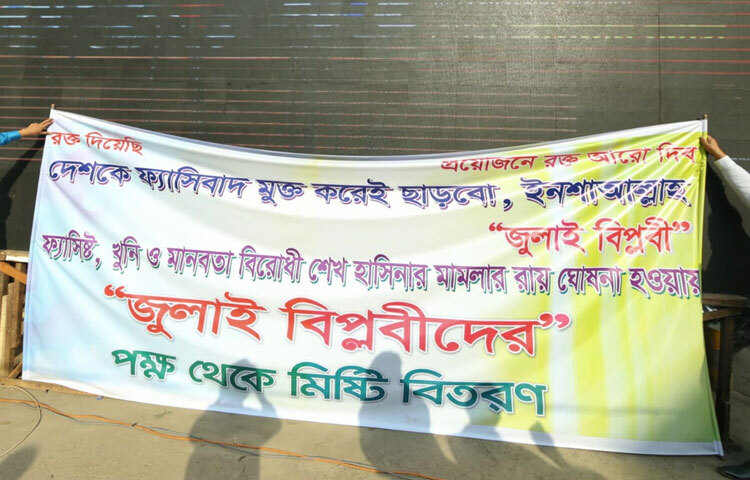 রক্ত দিয়েছি প্রয়োজনে রক্ত আরো দিব
দেশকে ফ্যাসিবাদ মুক্ত করেই ছাড়বো, ইনশাআল্লাহ
“জুলাই বিপ্লবী”
ফ্যাসিষ্ট, খুনি ও মানবতা বিরোধী শেখ হাসিনার মামলার রায় ঘোষনা হওয়ায়
“জুলাই বিপ্লবীদের”
পক্ষ থেকে মিষ্টি বিতরণ